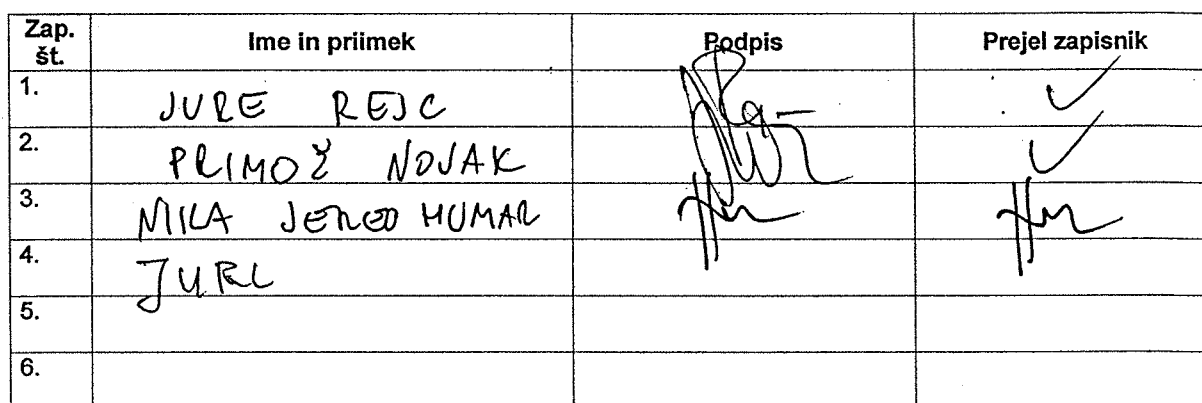 Zap. št. Ime in priimek Podpis Prejel zapisnik
1. JURE REJC
2. PRIMOŽ NOVAK
3. HUMAR
4.
5.
6.